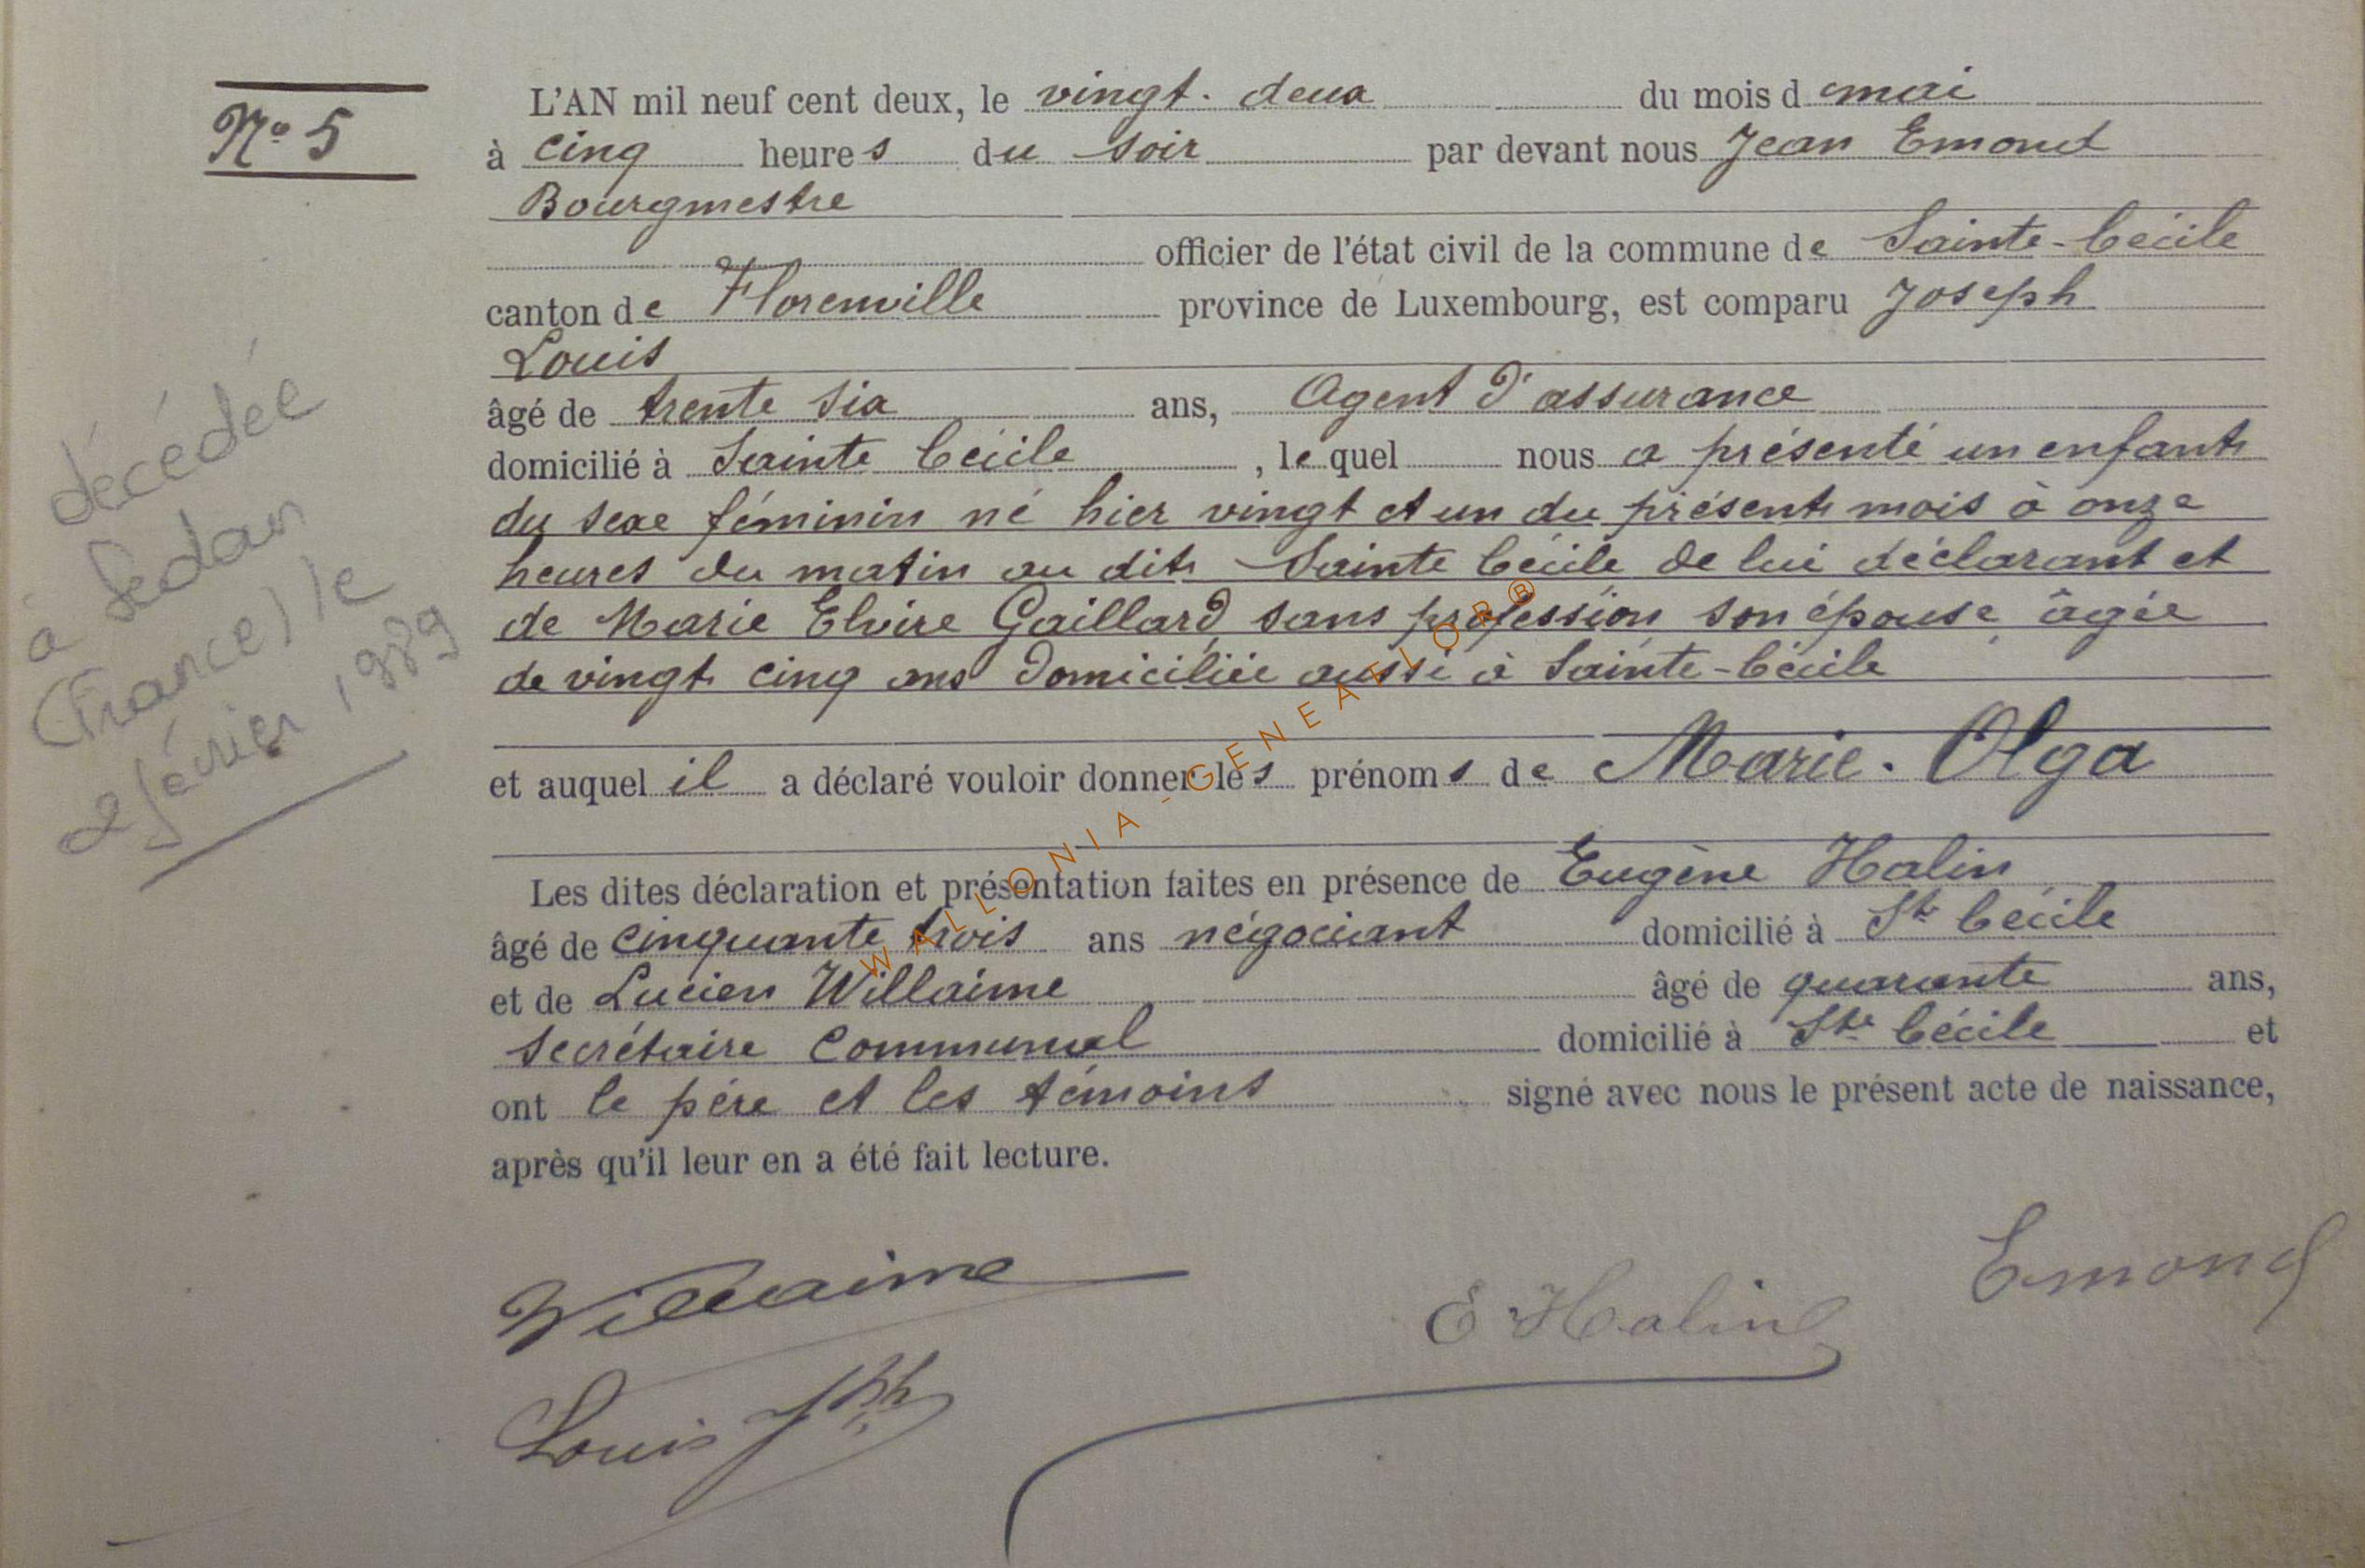 N° 5
L'AN mil neuf cent deux, le vingt-deux du mois d mai
à cinq heures du soir par devant nous Jean Emond
Bourgmestre
officier de l'état civil de la commune de Sainte-Cécile
canton de Florenville province de Luxembourg, est comparu Joseph
Louis
âgé de trente six ans, Agent d'assurance
domicilié à Sainte Cécile, le quel nous a présenté un enfant
du sexe féminin né hier vingt et un du présent mois à onze
heures du matin au dit Sainte Cécile de lui déclarant et
de Marie Elvire Gaillard sans profession son épouse âgée
de vingt cinq ans domiciliée aussi à Sainte-Cécile
et auquel il a déclaré vouloir donner les prénoms de Marie-Olga
Les dites déclaration et présentation faites en présence de Eugène Halin
âgé de cinquante trois ans négociant domicilié à Ste Cécile
et de Lucien Willaime âgé de quarante ans,
secrétaire communal domicilié à Ste Cécile et
ont le père et les témoins signé avec nous le présent acte de naissance,
après qu'il leur en a été fait lecture.
Willaime
E Halin
Emond
Louis Jph
décédée
à Sedan
(France) le
2 février 1989
WALLONIA-GENEAFLOR®